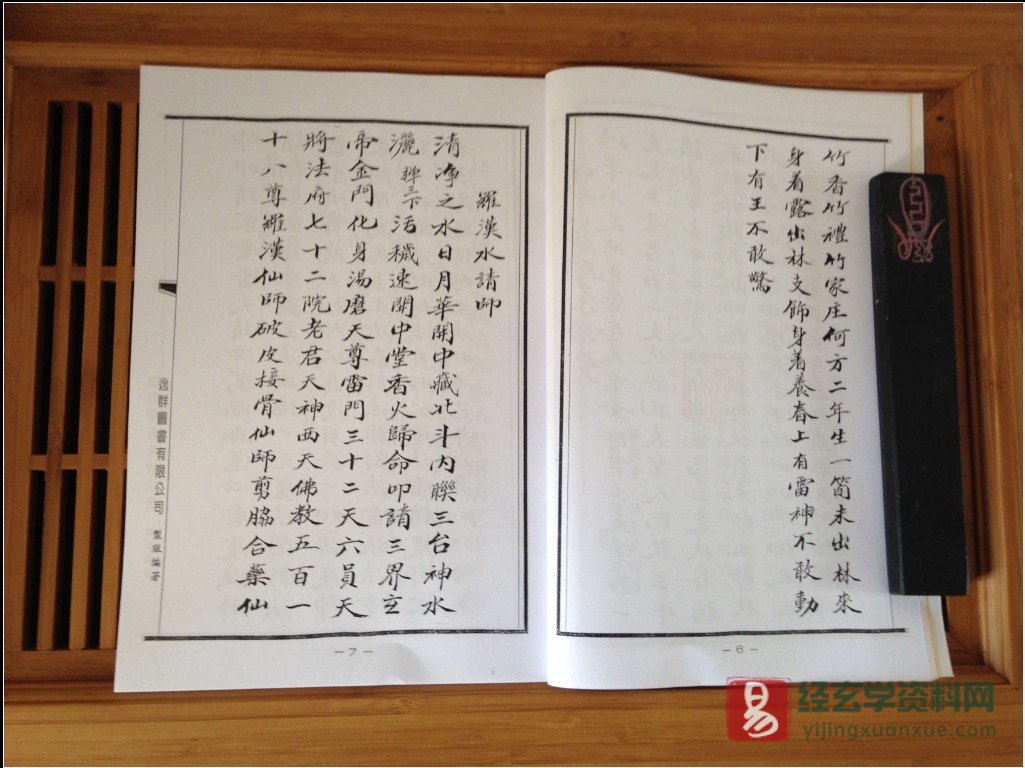 竹香竹禮竹家庄何方二年生一筒未出林來
身着露出林支飾身着養春上有雷神不敢動
下有王不敢驚
－6－
羅漢水請師
清净之水日月華開中藏北斗内聯三台神水
灑弹三下污穢速開中堂香火歸命叩請三界玄
帝金門化身湯磨天尊雷門三十二天六員天
將法府七十二院老君天神西天佛教五百一
十八尊羅漢仙師破皮接骨仙師剪脇合藥仙
逸群圖書有限公司 製版編著
－7－
易
经玄学资料网
yijingxuanxue.com